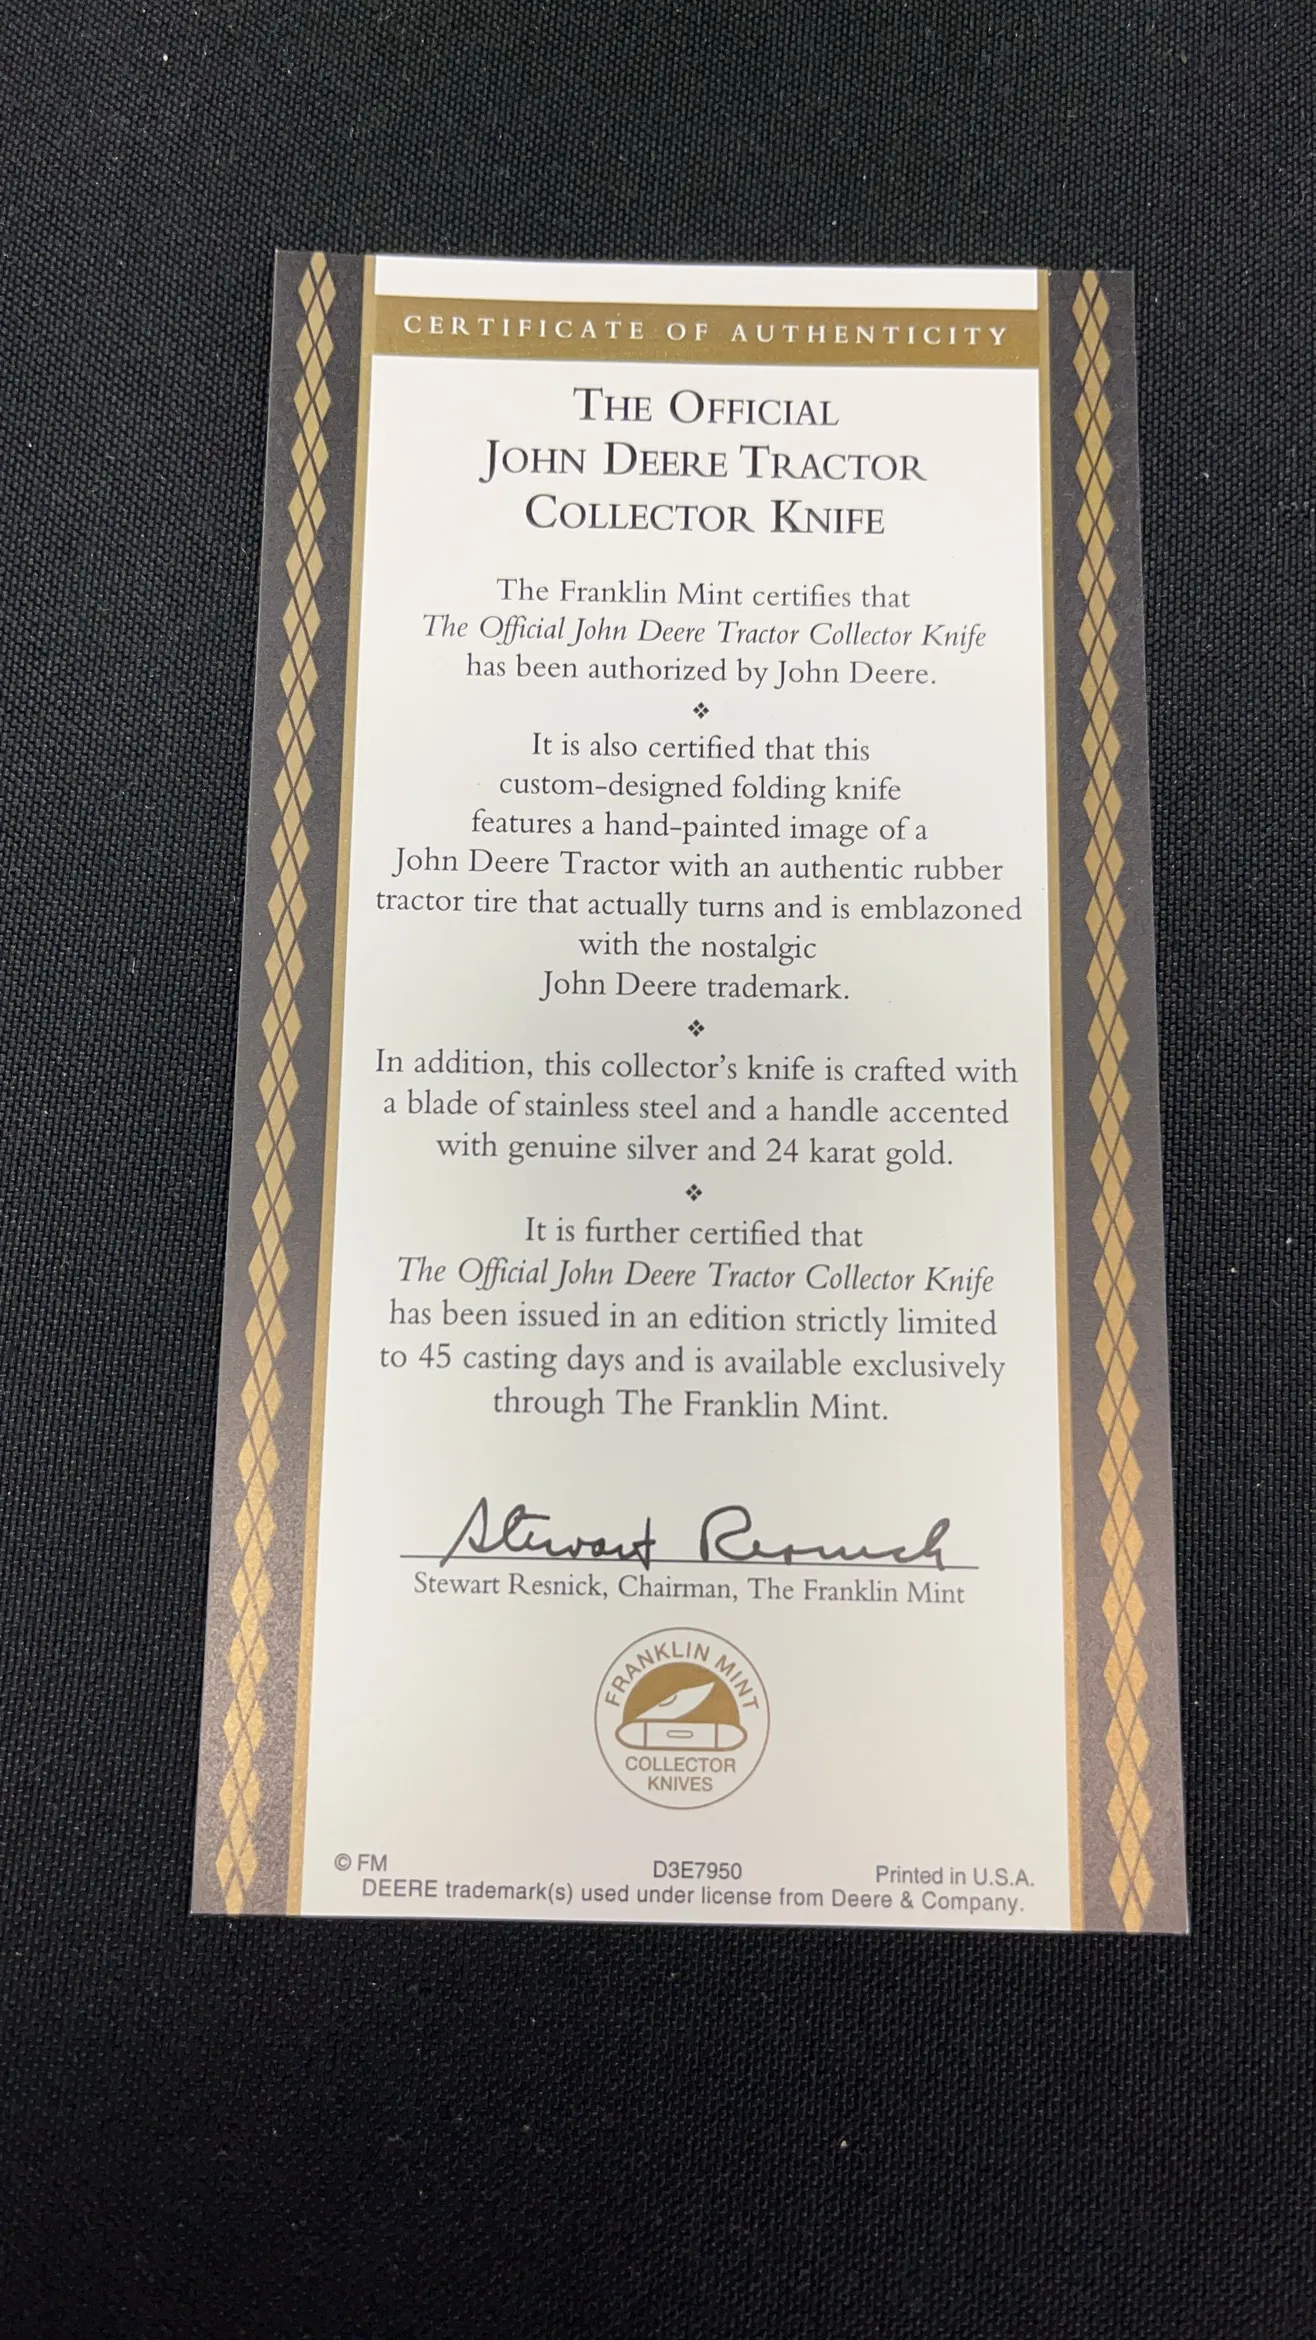 CERTIFICATE OF AUTHENTICITY
THE OFFICIAL
JOHN DEERE TRACTOR
COLLECTOR KNIFE
The Franklin Mint certifies that
The Official John Deere Tractor Collector Knife
has been authorized by John Deere.
❖
It is also certified that this
custom-designed folding knife
features a hand-painted image of a
John Deere Tractor with an authentic rubber
tractor tire that actually turns and is emblazoned
with the nostalgic
John Deere trademark.
❖
In addition, this collector's knife is crafted with
a blade of stainless steel and a handle accented
with genuine silver and 24 karat gold.
❖
It is further certified that
The Official John Deere Tractor Collector Knife
has been issued in an edition strictly limited
to 45 casting days and is available exclusively
through The Franklin Mint.
Stewart Resnick
Stewart Resnick, Chairman, The Franklin Mint
FRANKLIN MINT
COLLECTOR
KNIVES
© FM D3E7950 Printed in U.S.A.
DEERE trademark(s) used under license from Deere & Company.